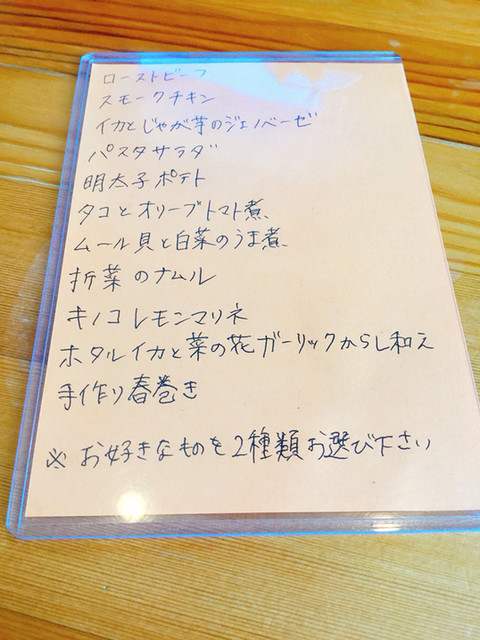 ローストビーフ
スモークチキン
イカとじゃが芋のジェノベーゼ
パスタサラダ
明太子ポテト
タコとオリーブトマト煮
ムール貝と白菜のうま煮
折菜のナムル
キノコレモンマリネ
ホタルイカと菜の花ガーリックからし和え
手作り春巻き
※ お好きなものを2種類お選び下さい